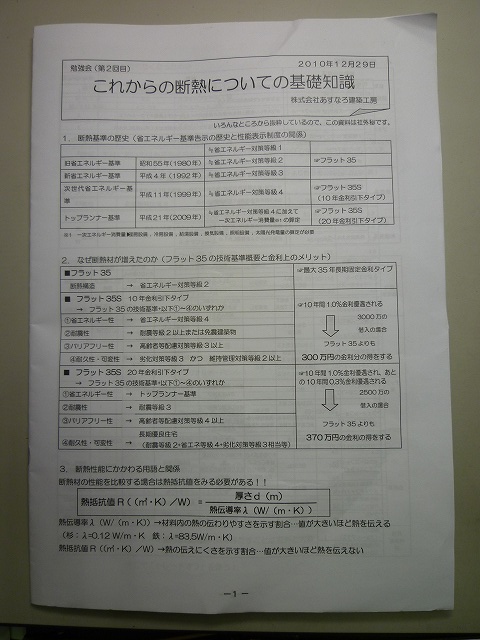 勉強会（第2回目）
2010年12月29日
これからの断熱についての基礎知識
株式会社あすなろ建築工房
いろんなところから抜粋しているので、この資料は社外秘です。
1．断熱基準の歴史（省エネルギー基準告示の歴史と性能表示制度の関係）
≒省エネルギー対策等級1
旧省エネルギー基準 昭和55年(1980年) ≒省エネルギー対策等級2 ☞フラット35
新省エネルギー基準 平成4年(1992年) ≒省エネルギー対策等級3
次世代省エネルギー基準 平成11年(1999年) ≒省エネルギー対策等級4 ☞フラット35S
(10年金利引下タイプ)
トップランナー基準 平成21年(2009年) ≒省エネルギー対策等級4に加えて
一次エネルギー消費量※1の算定
☞フラット35S
(20年金利引下タイプ)
2．なぜ断熱材が増えたのか（フラット35の技術基準概要と金利上のメリット）
■フラット35
☞最大35年長期固定金利タイプ
断熱構造 → 省エネルギー対策等級2
■ フラット35S 10年金利引下タイプ
→ フラット35の技術基準+以下①～④のいずれか
①省エネルギー性 → 省エネルギー対策等級4
②耐震性 → 耐震等級2以上または免震建築物
③バリアフリー性 → 高齢者等配慮対策等級3以上
④耐久性・可変性 → 劣化対策等級3 かつ 維持管理対策等級2以上
☞10年間1.0%金利優遇される
3000万の
借入の場合
フラット35よりも
300万円の金利分の得をする
■ フラット35S 20年金利引下タイプ
→ フラット35の技術基準+以下①～④のいずれか
①省エネルギー性 → トップランナー基準
②耐震性 → 耐震等級3
③バリアフリー性 → 高齢者等配慮対策等級4以上
④耐久性・可変性 → 長期優良住宅
(耐震等級2+省エネ等級4+劣化対策等級3相当等)
☞10年間1.0%金利優遇され、あと
の10年間0.3%金利優遇される
2500万の
借入の場合
フラット35よりも
370万円の金利の得をする
3．断熱性能にかかわる用語と関係
断熱材の性能を比較する場合は熱抵抗値をみる必要がある！！
熱抵抗値R（（㎡・K）／W）＝ 厚さd（m）
熱伝導率λ（W/（m・K））
熱伝導率λ（W/（m・K））→材料内の熱の伝わりやすさを示す割合…値が大きいほど熱を伝える
（杉：λ=0.12 W/m・K 鉄：λ=83.5W/m・K）
熱抵抗値R（（㎡・K）/W）→熱の伝えにくさを示す割合…値が大きいほど熱を伝えない
－1－